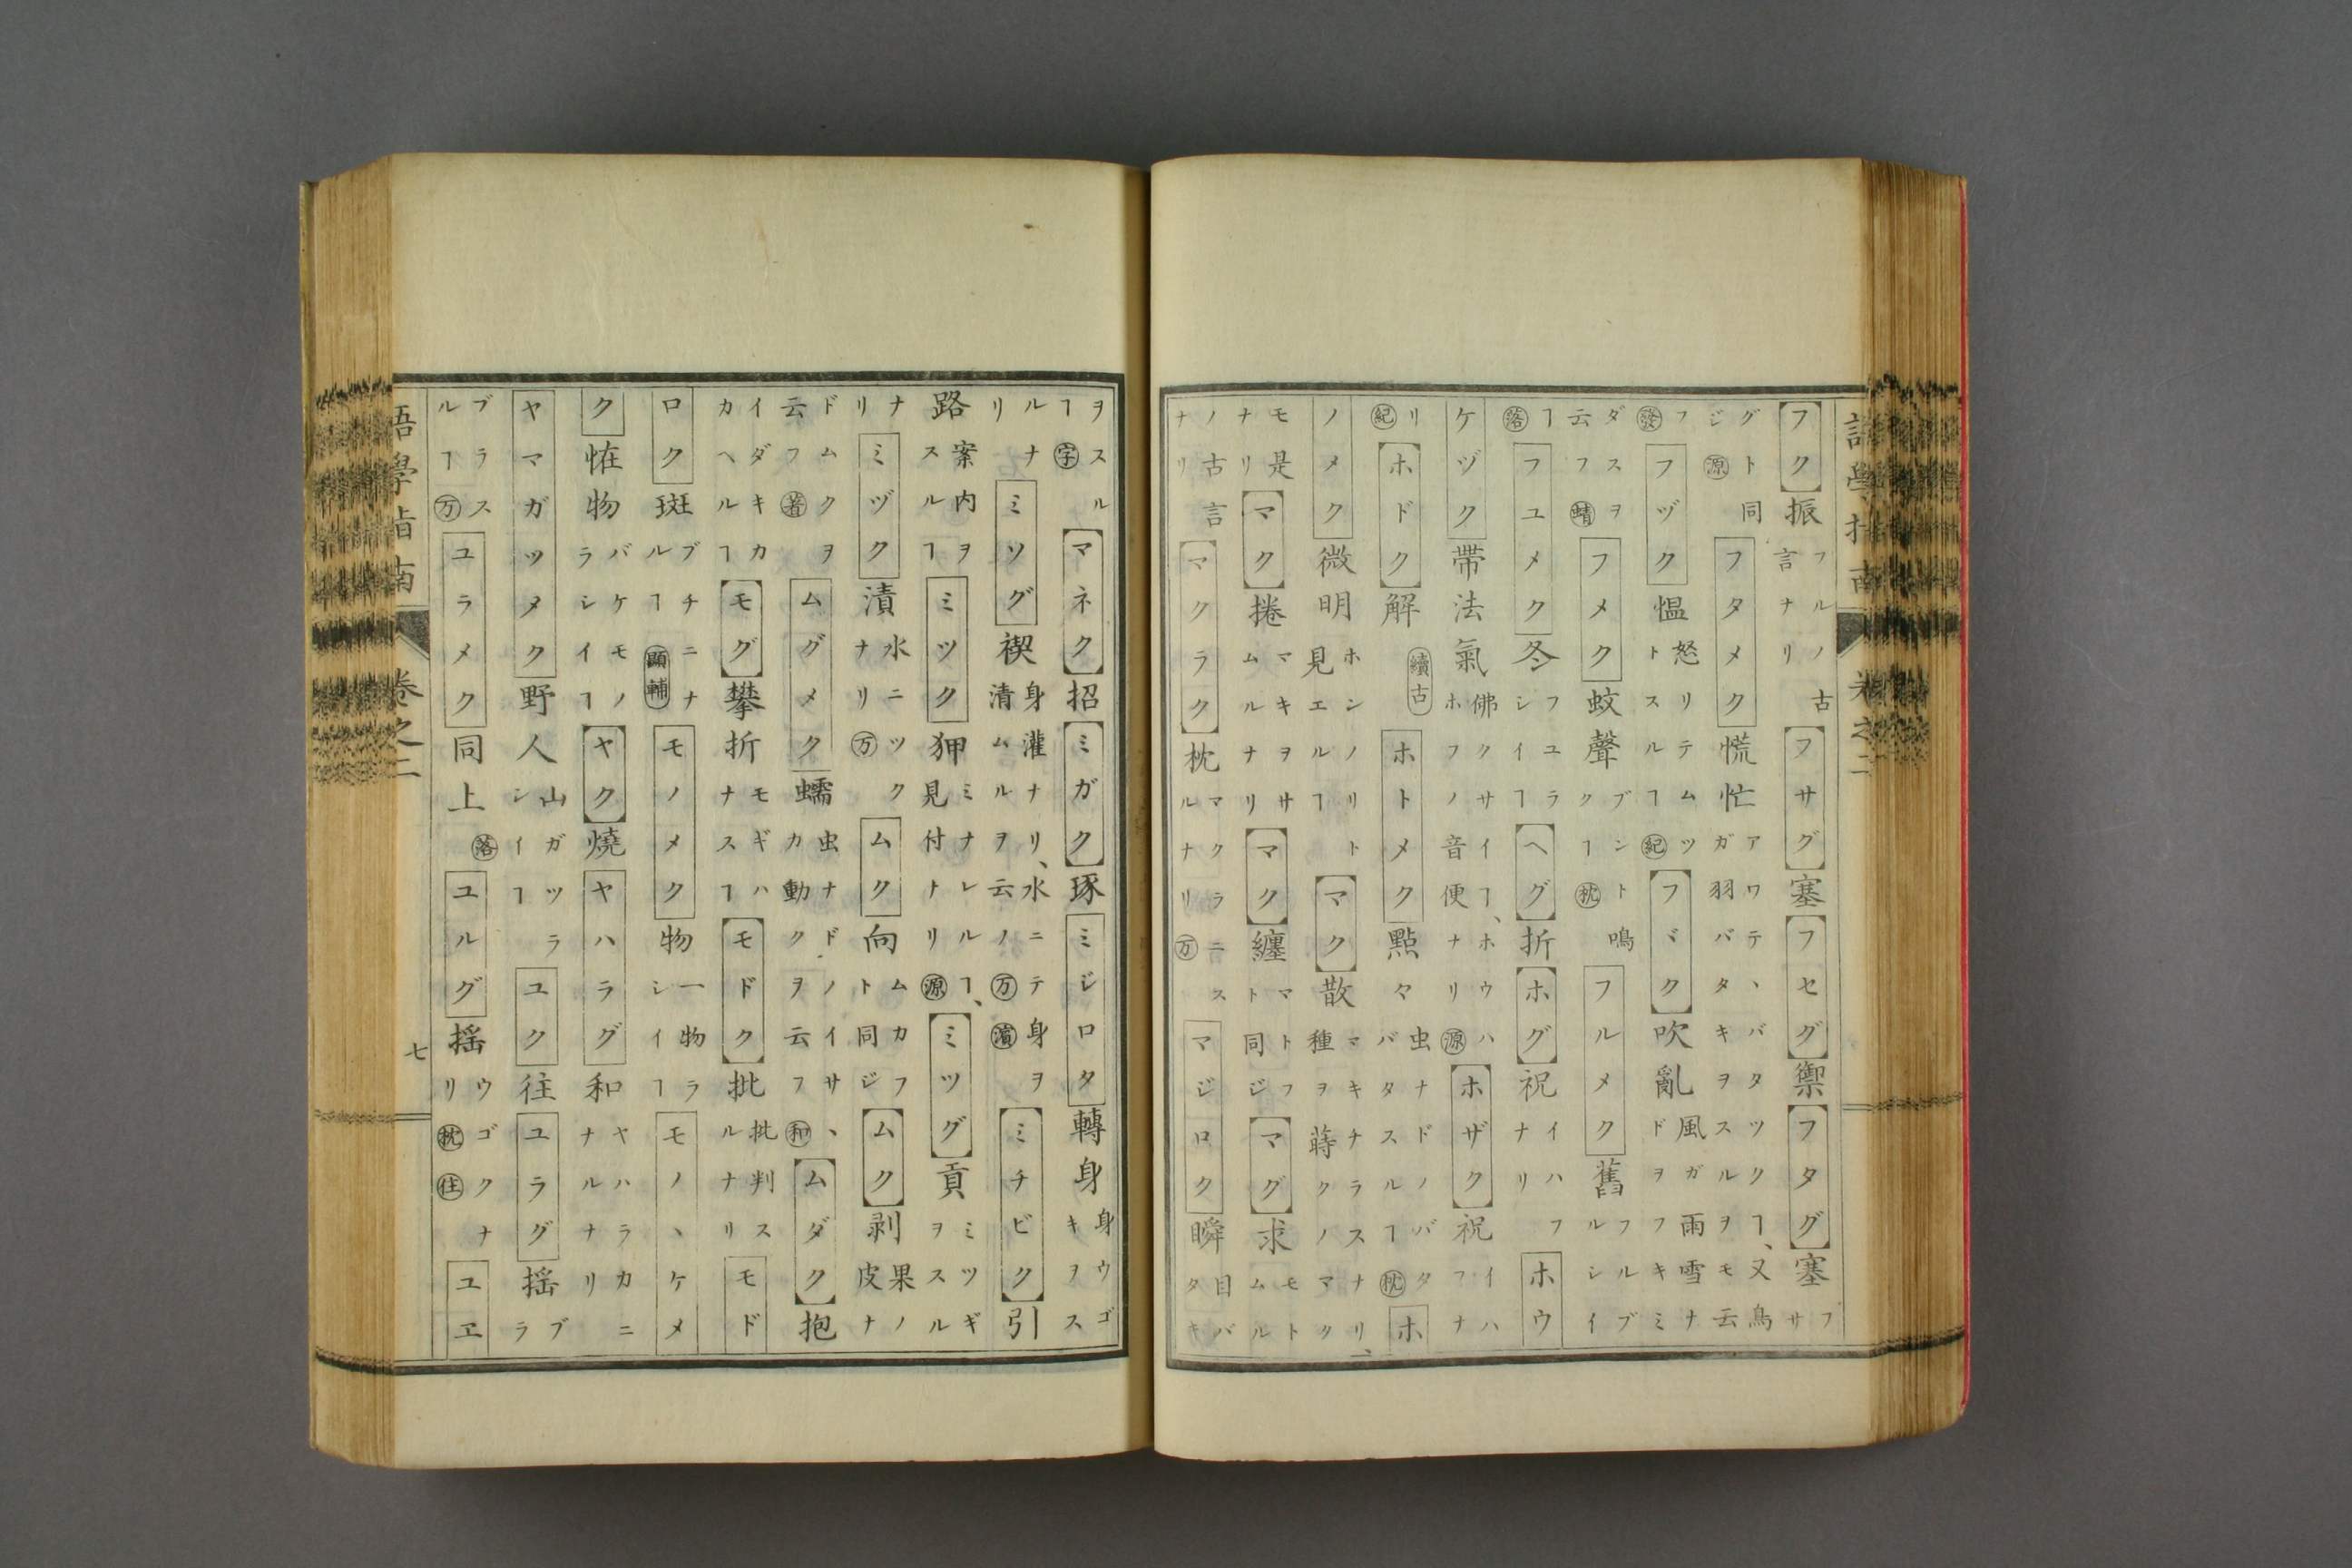 フク振フルノ古言ナリフサグ塞フセグ禦フタグ塞フサ
グト同ジ源フタメク慌忙アワテヽバタツクヿ、又鳥ガ羽バタキヲスルヲモ云
フ發フヅク慍怒リテムツトスルヿ紀フヾク吹亂風ガ雨雪ナドヲフキミ
ダスヲ云フ蜻フメク蚊聲ブント鳴クヿ枕フルメク舊フルブルシイ
ヿ落フユメク冬フユラシイヿヘグ折ホグ祝イハフナリホウ
ケヅク帶法氣佛クサイヿ、ホウハホフノ音便ナリ源ホザク祝イハフナ
リ紀ホドク解續古ホトメク點々虫ナドノバタバタスルヿ枕ホ
ノメク微明ホンノリト見エルヿマク散マキチラスナリ、種ヲ蒔クノマク
モ是ナリマク捲マキヲサムルナリマク纏マトフト同ジマグ求モトムル
ノ古言ナリマクラク枕マクラニスルナリ万マジロク瞬目バタキ
ヲスルヿ字マネク招ミガク琢ミジロタ轉身身ウゴキヲス
ルナリミソグ禊身灌ナリ、水ニテ身ヲ清ムルヲ云ノ万濱ミチビク引
路案内ヲスルヿミツク狎ミナレルヿ、見付ナリ源ミツグ貢ミツギヲスル
ナリミヅク漬水ニツクナリ万ムク向ムカフト同ジムク剥果ノ皮ナ
ドムクヲ云フ著ムグメク蠕虫ナドノイサヽカ動クヲ云フ和ムダク抱
イダキカカヘルヿモグ攀折モギハナスヿモドク批批判スルナリモド
ロク斑ブチニナルヿ顯輔モノメク物一物ラシイヿモノヽケメ
ク恠物バケモノラシイヿヤク燒ヤハラグ和ヤハラカニナルナリ
ヤマガツメク野人山ガツラシイヿユク往ユラグ搖ブラ
ブラスルヿ万ユラメク同上落ユルグ搖ウゴクナリ枕住ユヱ
語學指南 卷之二 七